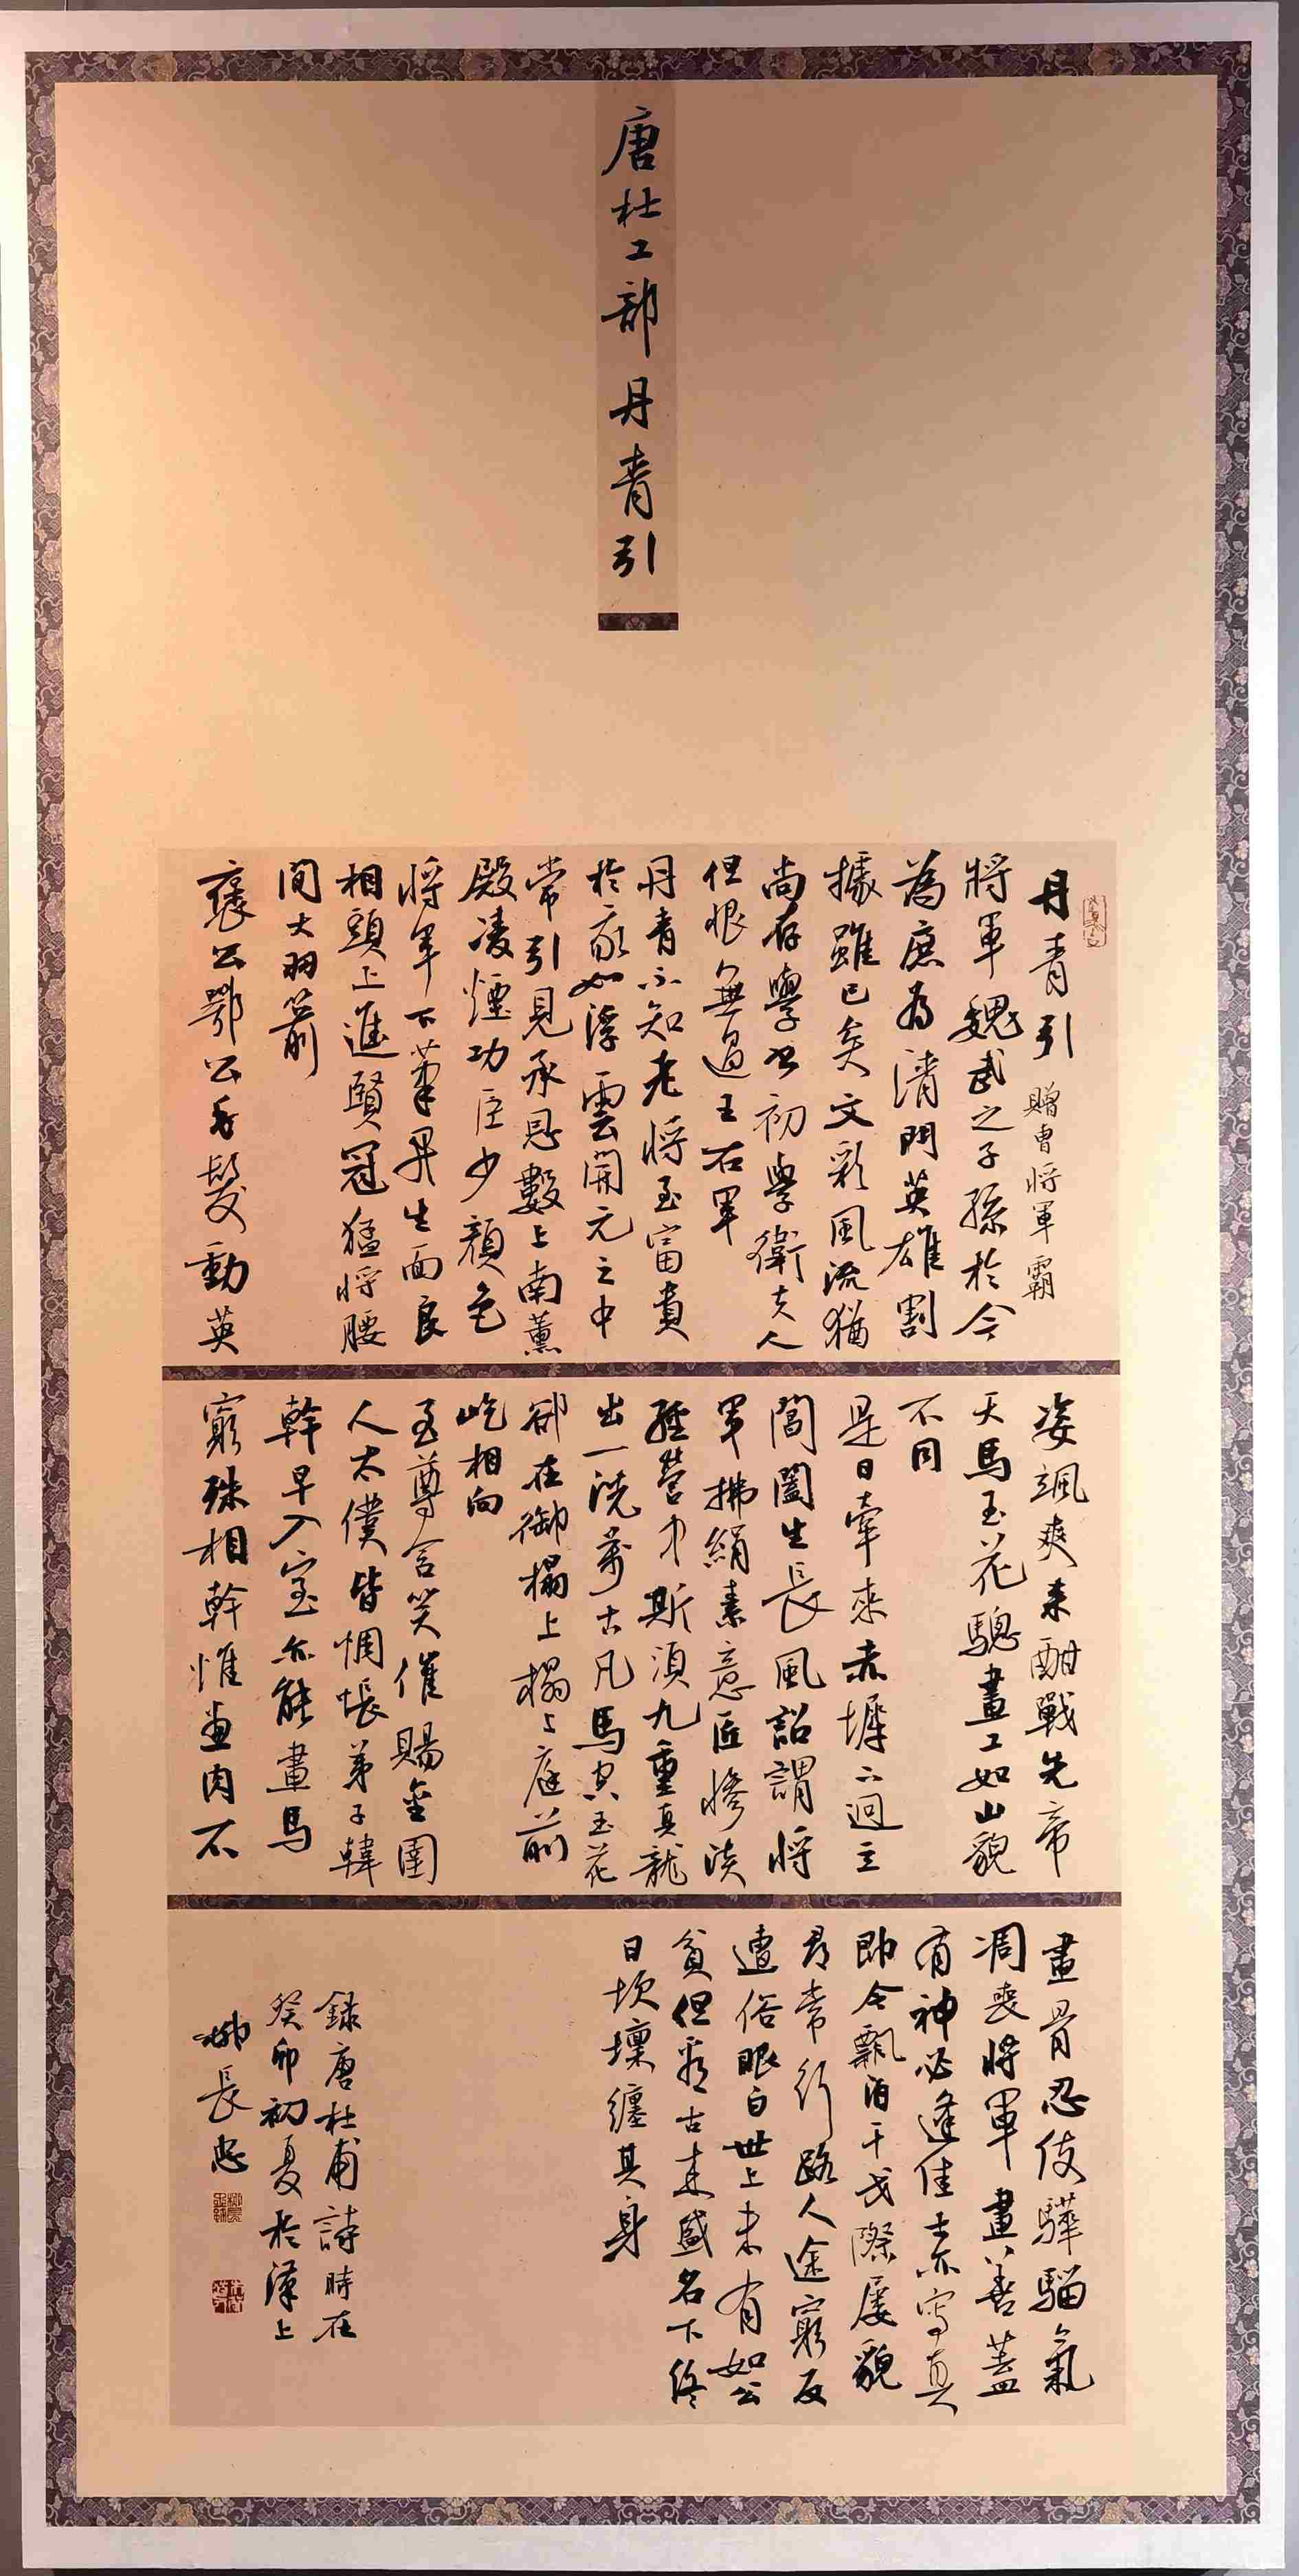 唐杜工部丹青引
丹青引 贈曹將軍霸
將軍魏武之子孫於今
為庶為清門英雄割
據雖已矣文彩風流猶
尚存學書初學衛夫人
但恨無過王右軍
丹青不知老將至富貴
於我如浮雲開元之中
常引見承恩數上南薰
殿凌煙功臣少顏色
將軍下筆開生面良
相頭上進賢冠猛將腰
間大羽箭
褒公鄂公毛髮動英
姿颯爽來酣戰先帝
天馬玉花驄畫工如山貌
不同
是日牽來赤墀下迥立
閶闔生長風詔謂將
軍拂絹素意匠慘淡
經營中斯須九重真龍
出一洗萬古凡馬空玉花
卻在御榻上榻上庭前
屹相向
至尊含笑催賜金圉
人太僕皆惆悵弟子韓
幹早入室亦能畫馬
窮殊相幹惟畫肉不
畫骨忍使驊騮氣
凋喪將軍畫善蓋
有神必逢佳士亦寫真
即今飄泊干戈際屢貌
尋常行路人途窮反
遭俗眼白世上未有如公
貧但看古來盛名下終
日坎壈纏其身
錄唐杜甫詩時在
癸卯初夏於漢上
柳長忠